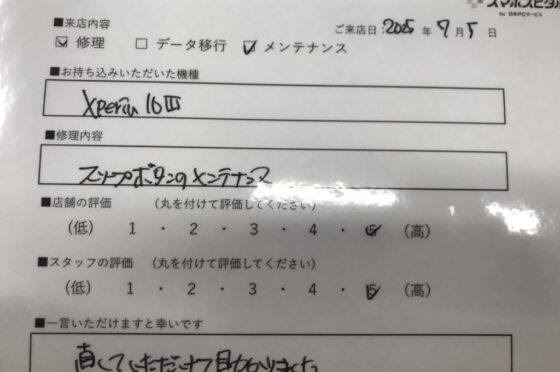 スマホスピタル
by 日本PCサービス
■来店内容
ご来店日：2025 年 7 月 5 日
☑ 修理 □ データ移行 ☑ メンテナンス
■お持ち込みいただいた機種
Xperia 10 III
■修理内容
スリープボタンのメンテナンス
■店舗の評価 （丸を付けて評価してください）
（低） 1 ・ 2 ・ 3 ・ 4 ・ 5 （高）
■スタッフの評価 （丸を付けて評価してください）
（低） 1 ・ 2 ・ 3 ・ 4 ・ 5 （高）
■一言いただけますと幸いです
直していただけて助かりました